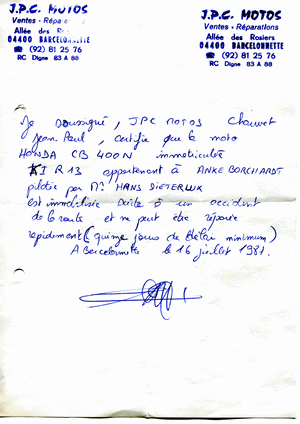 J.P.C. MOTOS
Ventes - Réparations
Allée des Rosiers
04400 BARCELONNETTE
☎ (92) 81 25 76
RC Digne 83 A 88
J.P.C. MOTOS
Ventes - Réparations
Allée des Rosiers
04400 BARCELONNETTE
☎ (92) 81 25 76
RC Digne 83 A 88
Je soussigné, JPC MOTOS Chauvet
Jean Paul, certifie que la moto
HONDA CB 400N immatriculée
I R 13 appartenant à ANKE BORCHARDT
pilotée par Mr HANS DIETER LUX
est immobilisée suite à un accident
de la route et ne peut être réparée
rapidement (quinze jours de délai minimum)
A Barcelonnette le 16 juillet 1981.